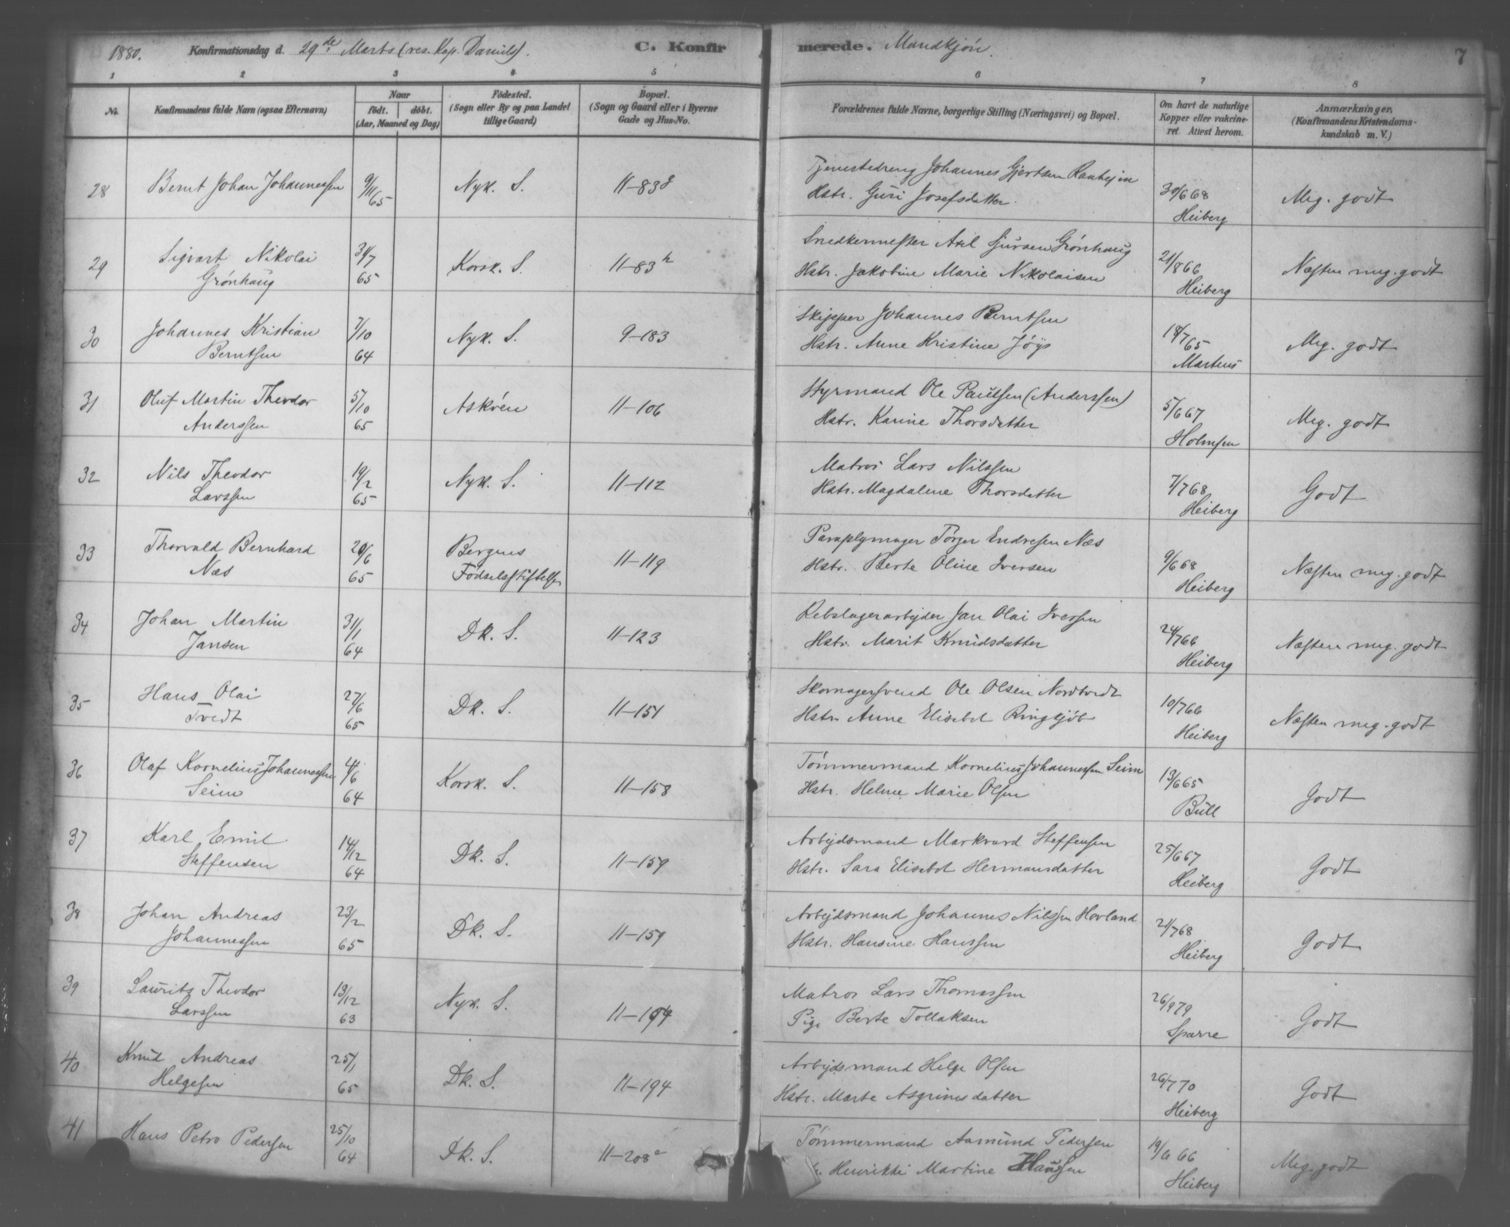 1880. Konfirmationsdag d. 29de Marts (res. Kap. Daniels). C. Konfirmerede. Mandkjön. 7
1 2 3 4 5 6 7 8
No. Konfirmandens fulde Navn (ogsaa Efternavn) Naar födt. döbt. (Aar, Maaned og Dag) Födested. (Sogn eller By og paa Landet tillige Gaard) Bopæl. (Sogn og Gaard eller i Byerne Gade og Hus-No. Forældrenes fulde Navne, borgerlige Stilling (Næringsvei) og Bopæl. Om havt de naturlige Kopper eller vakcineret. Attest herom. Anmærkninger. (Konfirmandens Kristendomskundskab m. V.)
28 Bernt Johan Johannessen 9/11 65 Nyk. S. 11-83 Tjenestedreng Johannes Gjertsen
Hstr. Guri Josefsdatter. 30/6 68 Heiberg Meg. godt
29 Sigvart Nikolai Grönhaug 31/7 65 Korsk. S. 11-83 Snedkermester Axel Grönhaug
Hstr. Jakobine Marie Nikolaisen 21/8 66 Heiberg Næsten meg. godt
30 Johannes Kristian Berntsen 7/10 64 Nyk. S. 9-183 Skipper Johannes Berntsen
Hstr. Anne Kristine Jöys 18/7 65 Martens Meg. godt
31 Oluf Martin Theodor Anderssen 5/10 65 Asköen 11-106 Styrmand Ole Paulsen (Anderssen)
Hstr. Karine Thorsdatter 5/6 67 Holmsen Meg. godt
32 Nils Theodor Larssen 19/2 65 Nyk. S. 11-112 Matros Lars Nilssen
Hstr. Magdalene Thorsdatter 7/7 68 Heiberg Godt
33 Thorvald Bernhard Næs 20/6 65 Bergens Födselsstiftelse 11-119 Paraplymager Torger Endresen Næs
Hstr. Berte Oline Iversen 9/6 68 Heiberg Næsten meg. godt
34 Johan Martin Jansen 31/1 64 Dk. S. 11-123 Rebslagerarbejder Jan Olai Iversen
Hstr. Marit Knudsdatter 24/7 66 Heiberg Næsten meg. godt
35 Hans Olai Tvedt 27/6 65 Dk. S. 11-151 Skomagersvend Ole Olsen Nordtvedt
Hstr. Anne Elisebet 10/7 66 Heiberg Næsten meg. godt
36 Olaf Kornelius Johannessen Seim 4/6 64 Korsk. S. 11-158 Tömmermand Kornelius Johannessen Seim
Hstr. Helene Marie Olsen 13/6 65 Bull Godt
37 Karl Emil Steffensen 14/12 64 Dk. S. 11-159 Arbejdsmand Markvard Steffensen
Hstr. Sara Elisebet Hermansdatter 25/6 67 Heiberg Godt
38 Johan Andreas Johannessen 23/2 65 Dk. S. 11-159 Arbejdsmand Johannes Nilssen Hovland
Hstr. Hansine Hanssen 21/7 68 Heiberg Godt
39 Laurits Theodor Larssen 13/12 63 Nyk. S. 11-194 Matros Lars Thomassen
Pige Berte Tollaksen 26/9 79 Sparre Godt
40 Knud Andreas Helgesen 25/1 65 Dk. S. 11-194 Arbejdsmand Helge Olsen
Hstr. Marte Asgrimsdatter 26/7 70 Heiberg Godt
41 Hans Petro Pedersen 25/10 64 Dk. S. 11-208a Tömmermand Aamund Pedersen
Henrikke Martine Hansen 19/6 66 Heiberg Meg. godt